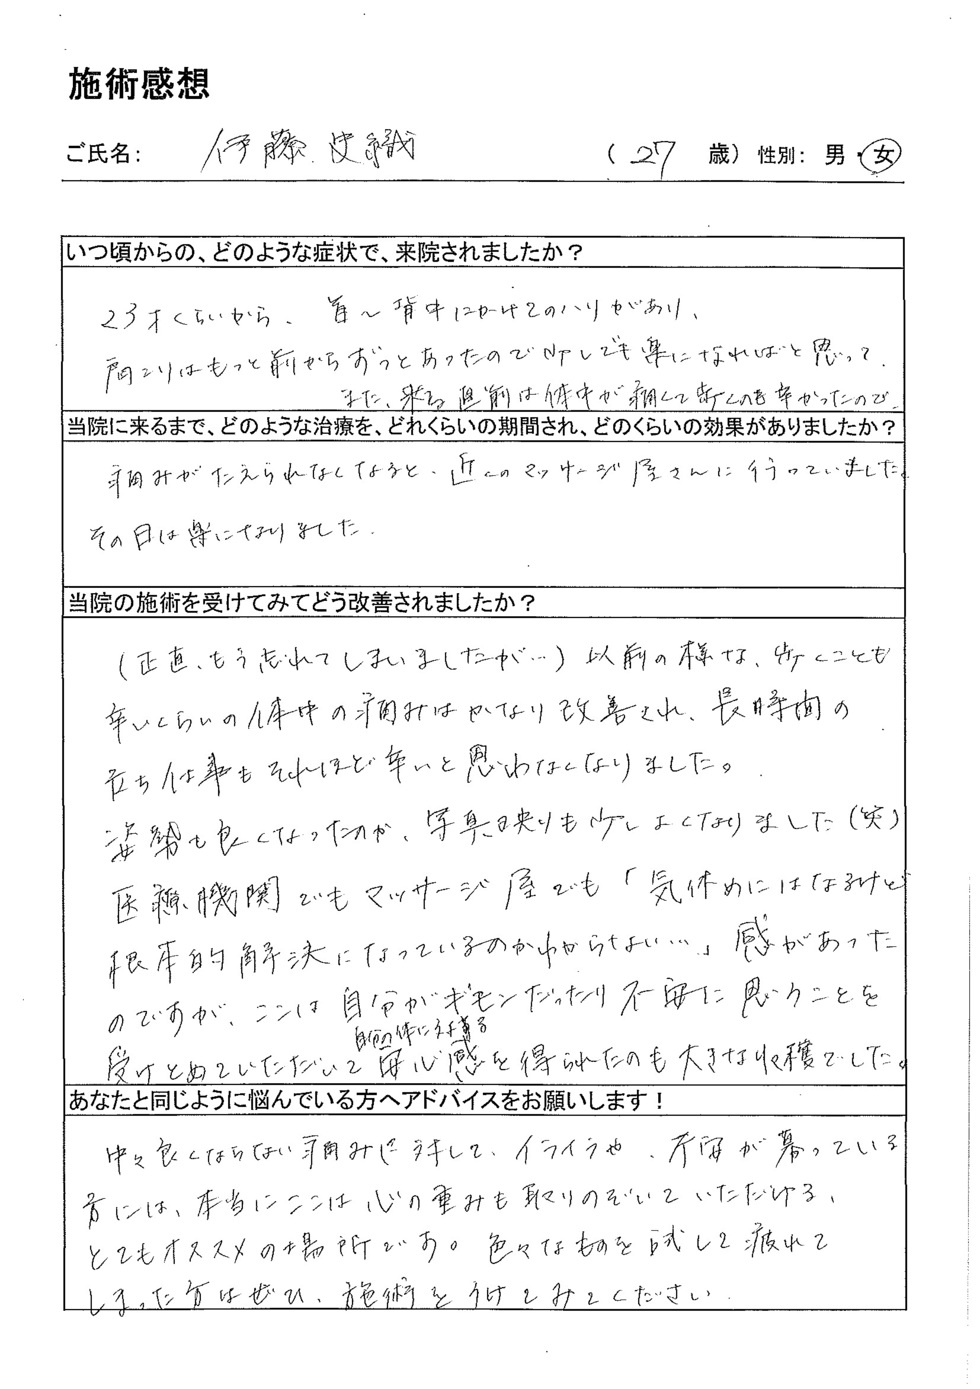 施術感想
ご氏名: 伊藤 史織 ( 27 歳) 性別: 男・女
いつ頃からの、どのような症状で、来院されましたか？
23才くらいから、首〜背中にかけてのハリがあり、
肩こりはもっと前からずっとあったので少しでも楽になればと思って。
また、来る直前は体中が痛くて歩くのも辛かったので。
当院に来るまで、どのような治療を、どれくらいの期間され、どのくらいの効果がありましたか？
痛みがたえられなくなると、近くのマッサージ屋さんに行っていました。
その日は楽になりました。
当院の施術を受けてみてどう改善されましたか？
(正直、もう忘れてしまいましたが…) 以前の様な、歩くことも
辛いくらいの体中の痛みはかなり改善され、長時間の
立ち仕事もそれほど辛いと思わなくなりました。
姿勢も良くなったのか、写真映りも少しよくなりました(笑)
医療機関でもマッサージ屋でも「気休めにはなるけど
根本的解決になっているのかわからない…」感があった
のですが、ここは自分がギモンだったり不安に思うことを
自分の体に
受けとめていただいて安心感を得られたのも大きな収穫でした。
あなたと同じように悩んでいる方へアドバイスをお願いします！
中々良くならない痛みに対して、イライラや、不安が募っている
方には、本当にここは心の重みも取りのぞいていただける、
とてもオススメの場所です。色々なものを試して疲れて
しまった方はぜひ、施術をうけてみてください。